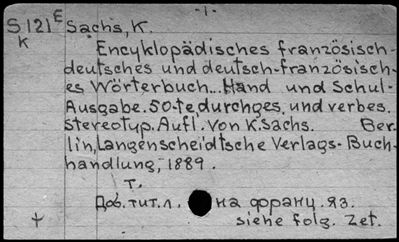 - 1 -
S 121 E Sachs, K.
K
Encyklopädisches französisch-
deutsches und deutsch-französisch-
es Wörterbuch... Hand und Schul-
Ausgabe. 50-te, durchges. und verbes.
Stereotyp. Aufl. von K. Sachs. Ber-
lin, Langenscheidtsche Verlags-Buch-
handlung, 1889.
т.
Доб. тит. л. на франц. яз.
siehe folg. Zet.